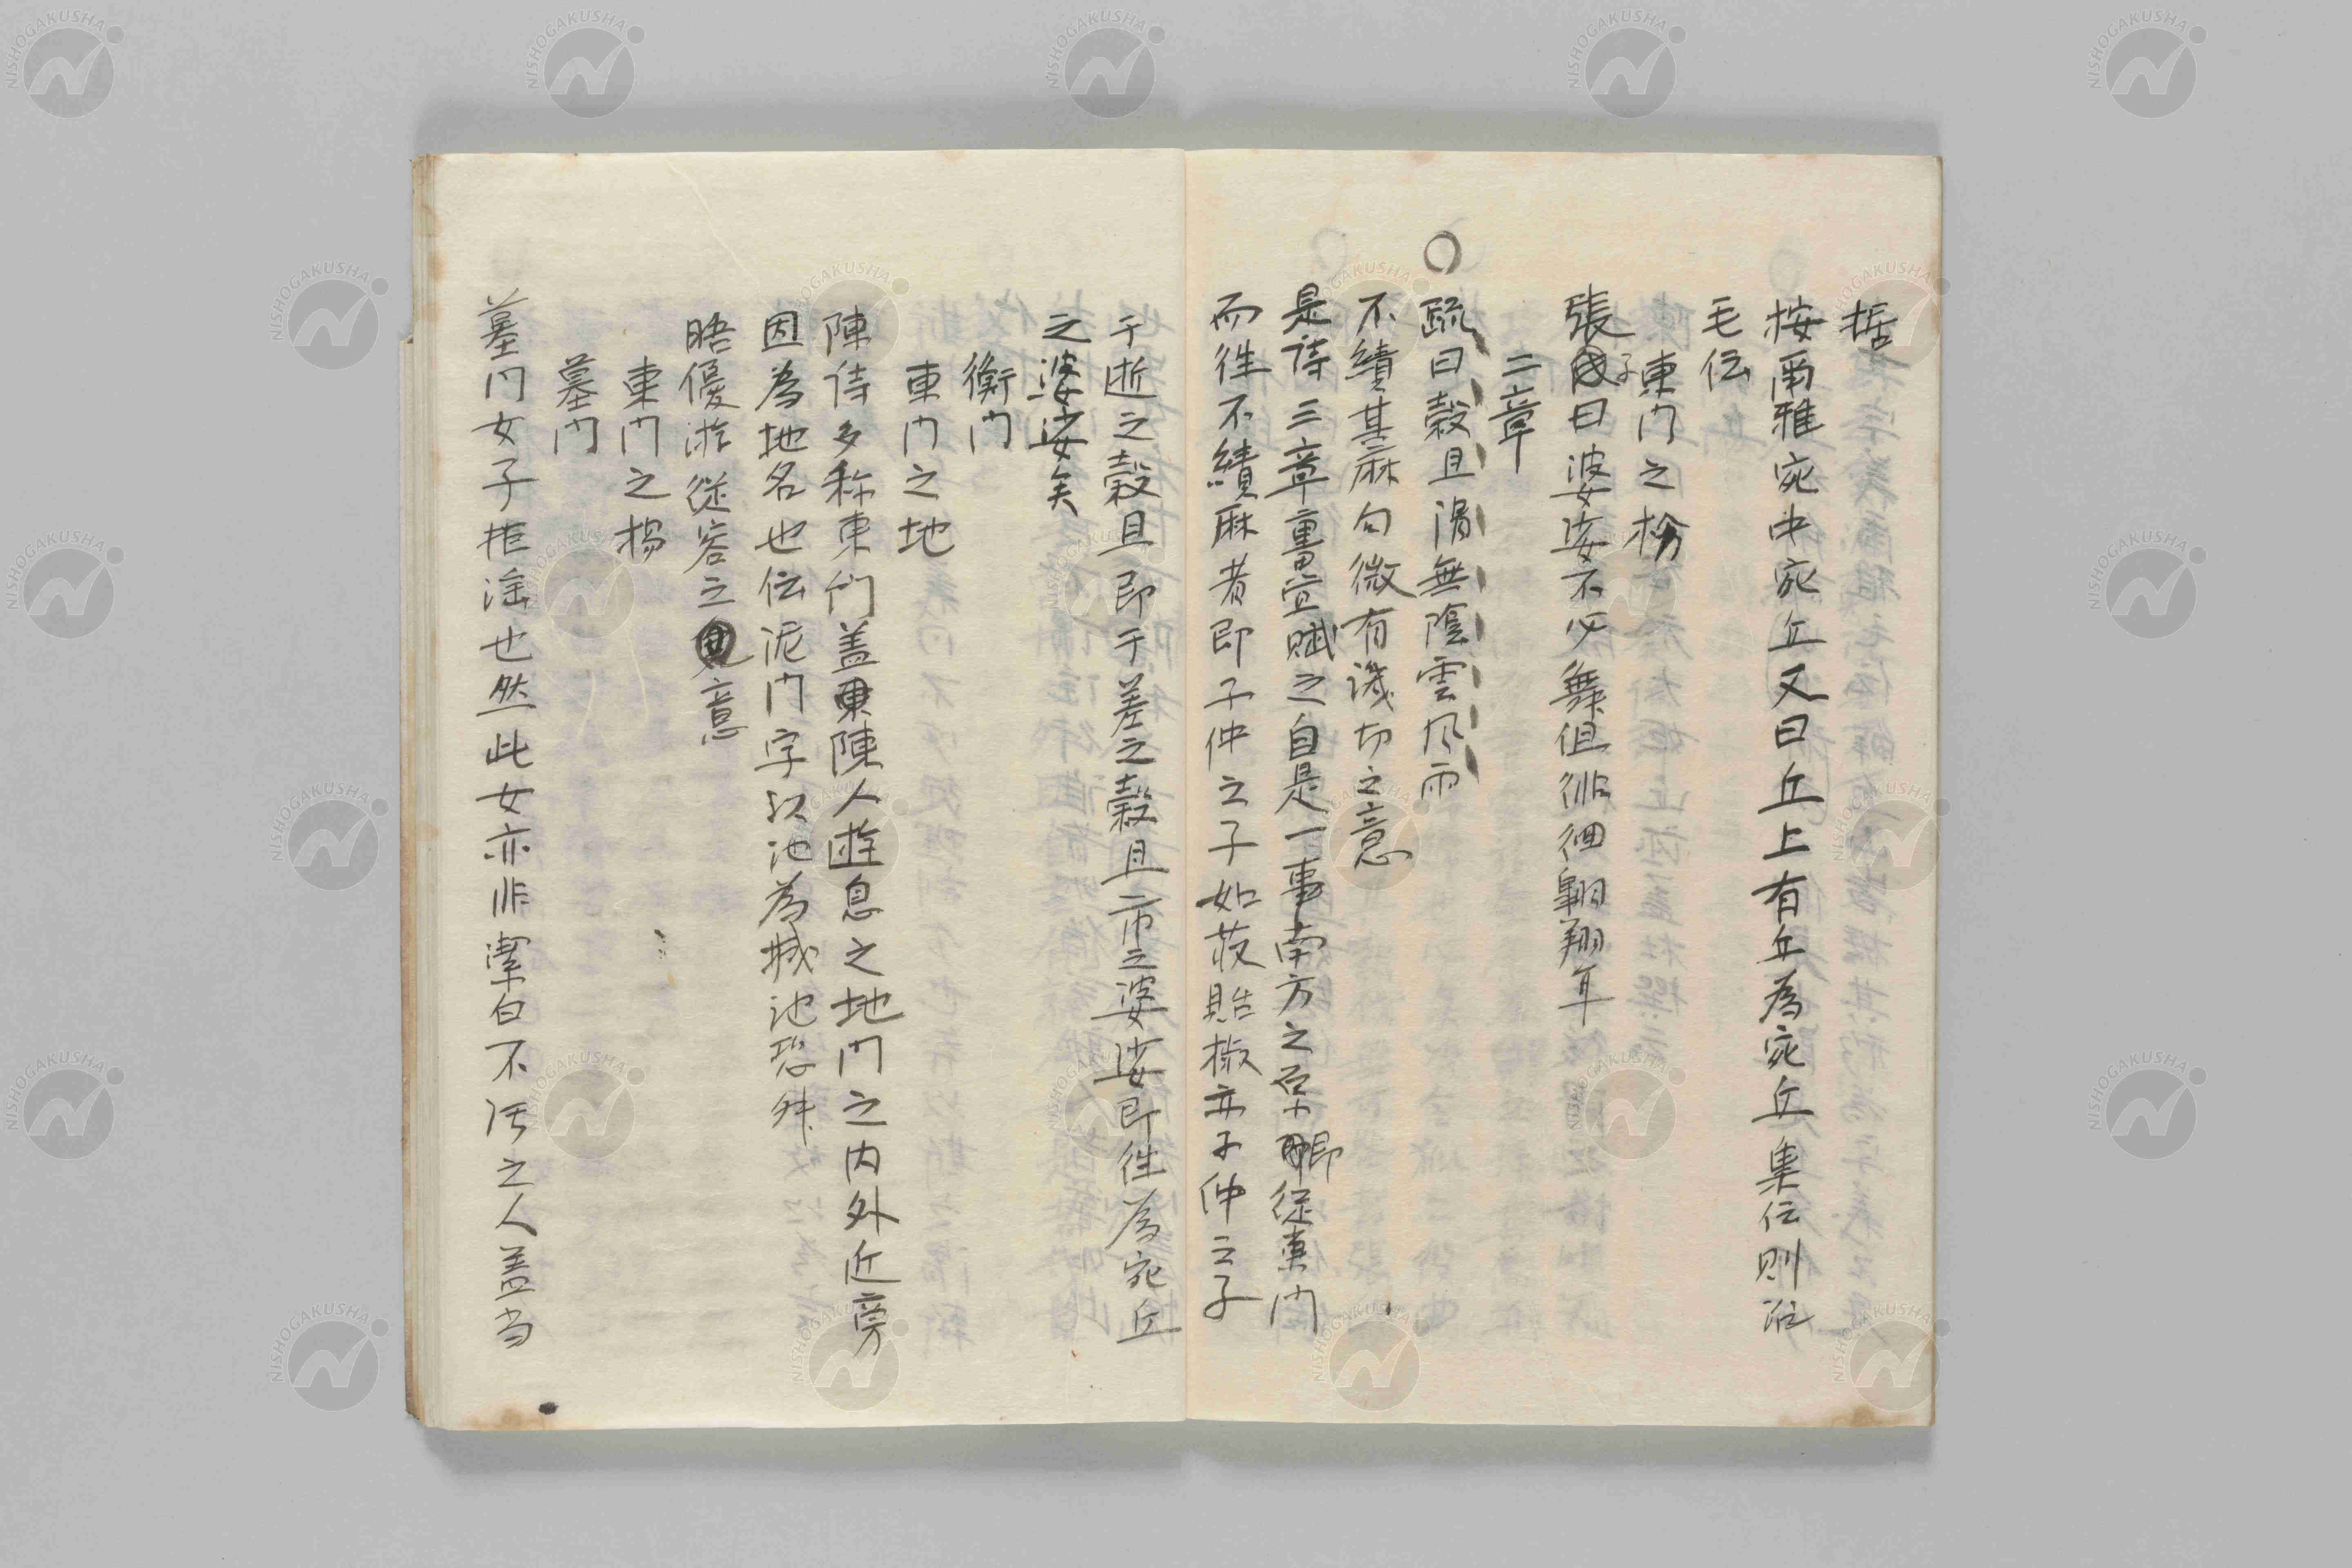 拠
按爾雅宛中宛丘又曰丘上有丘為宛丘集伝則沿
毛伝
東門之枌
張子曰婆娑不必舞但徘徊翺翔耳
二章
○疏曰穀旦謂無陰雲風雨
不績其麻句微有譏切之意
是詩三章畳宜賦之自是一事南方之原即従東門
而往不績麻者即子仲之子如荍貽椒亦子仲之子
于逝之穀旦即于差之穀旦市之婆娑即往為宛丘
之婆娑矣
衡門
東門之池
陳詩多称東門蓋東陳人遊息之地門之内外近旁
因為地名也伝泥門字以池為城池恐舛
晤優游従容之意
東門之楊
墓門
墓門女子拒淫也然此女亦非潔白不汚之人蓋当
NISHOGAKUSHA